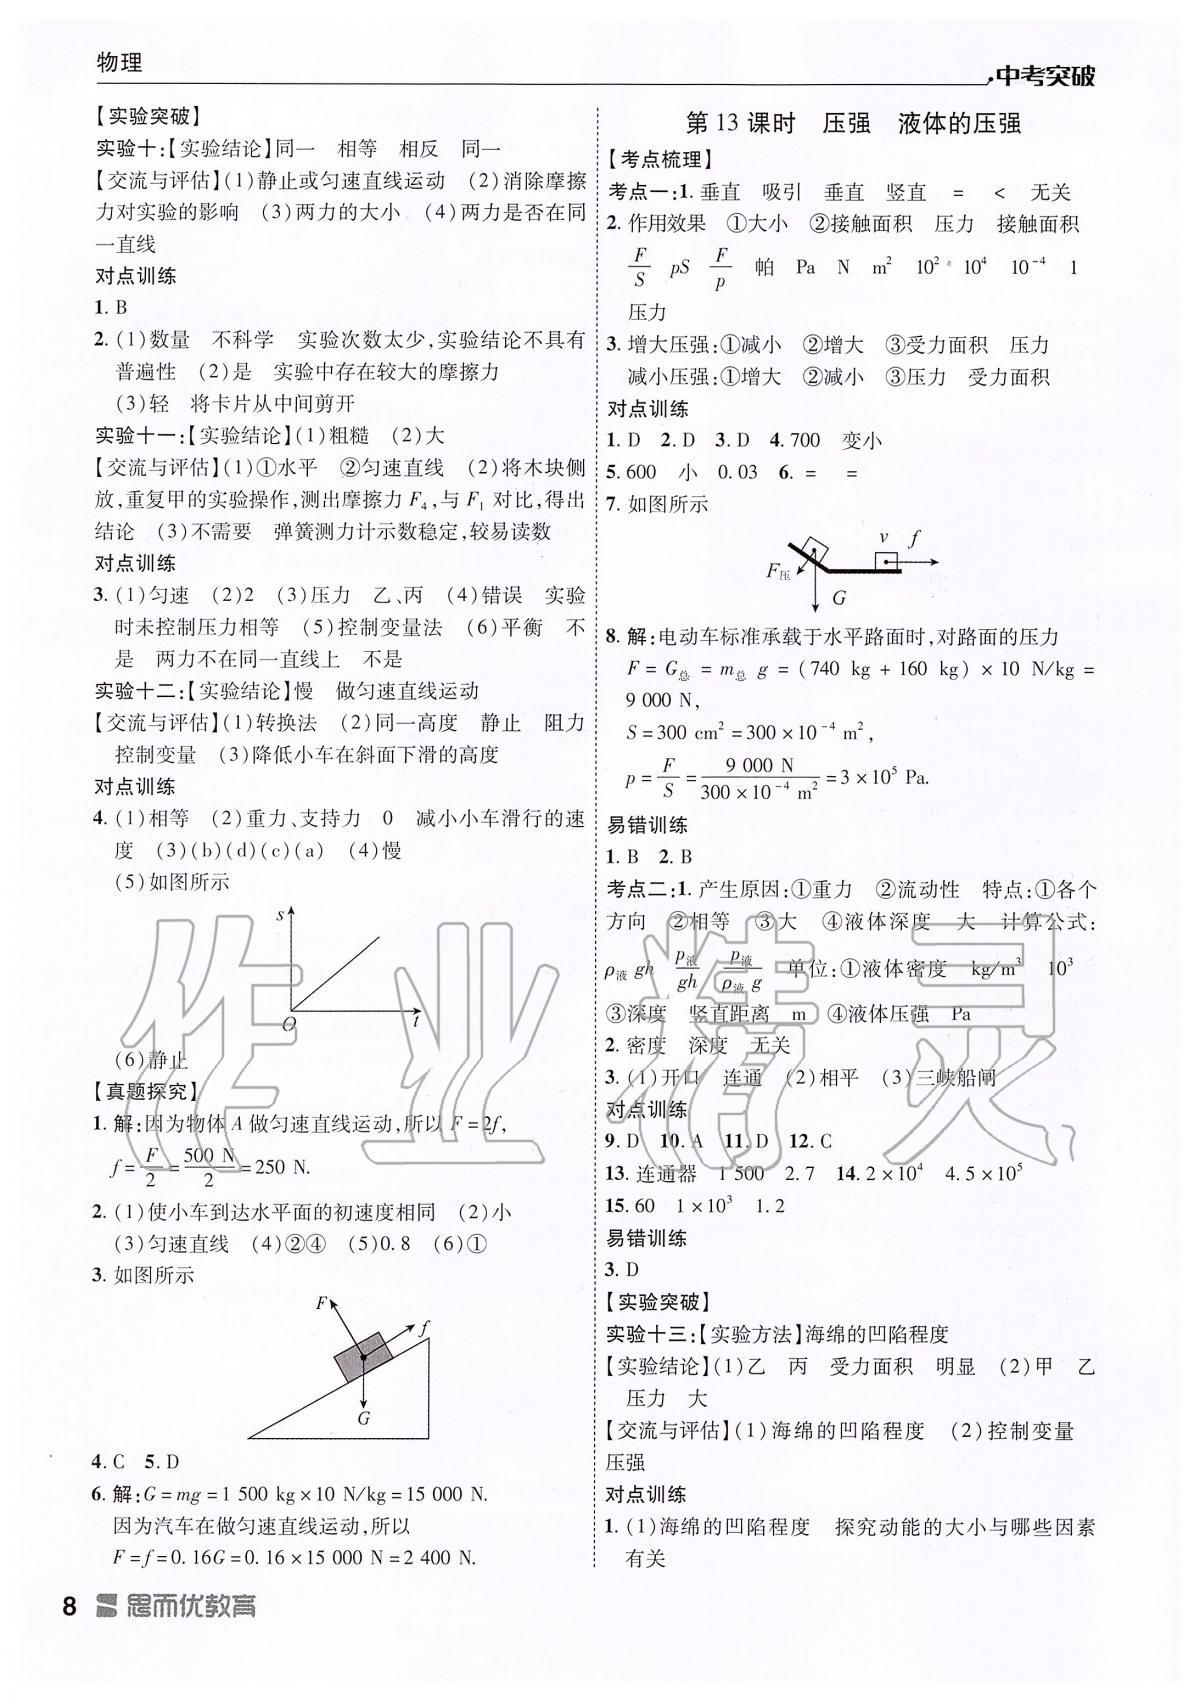 物理
中考突破
【实验突破】
实验十:【实验结论】同一　相等　相反　同一
【交流与评估】(1)静止或匀速直线运动　(2)消除摩擦
力对实验的影响　(3)两力的大小　(4)两力是否在同
一直线
对点训练
1. B
2. (1)数量　不科学　实验次数太少,实验结论不具有
普遍性　(2)是　实验中存在较大的摩擦力
(3)轻　将卡片从中间剪开
实验十一:【实验结论】(1)粗糙　(2)大
【交流与评估】(1)①水平　②匀速直线　(2)将木块侧
放,重复甲的实验操作,测出摩擦力 F₄,与 F₁ 对比,得出
结论　(3)不需要　弹簧测力计示数稳定,较易读数
对点训练
3. (1)匀速　(2)2　(3)压力　乙、丙　(4)错误　实验
时未控制压力相等　(5)控制变量法　(6)平衡　不
是　两力不在同一直线上　不是
实验十二:【实验结论】慢　做匀速直线运动
【交流与评估】(1)转换法　(2)同一高度　静止　阻力
控制变量　(3)降低小车在斜面下滑的高度
对点训练
4. (1)相等　(2)重力、支持力　0　减小小车滑行的速
度　(3)(b)(d)(c)(a)　(4)慢
(5)如图所示
s
O　t
(6)静止
【真题探究】
1. 解:因为物体 A 做匀速直线运动,所以 F=2f,
f=F/2=500 N/2=250 N.
2. (1)使小车到达水平面的初速度相同　(2)小
(3)匀速直线　(4)②④　(5)0.8　(6)①
3. 如图所示
F
f
G
4. C　5. D
6. 解:G=mg=1 500 kg×10 N/kg=15 000 N.
因为汽车在做匀速直线运动,所以
F=f=0.16G=0.16×15 000 N=2 400 N.
8　思而优教育
第 13 课时　压强　液体的压强
【考点梳理】
考点一:1. 垂直　吸引　垂直　竖直　=　<　无关
2. 作用效果　①大小　②接触面积　压力　接触面积
F/S　pS　F/p　帕　Pa　N　m²　10²　10⁴　10⁻⁴　1
压力
3. 增大压强:①减小　②增大　③受力面积　压力
减小压强:①增大　②减小　③压力　受力面积
对点训练
1. D　2. D　3. D　4. 700　变小
5. 600　小　0.03　6. =　=
7. 如图所示
v　f
F压
G
8. 解:电动车标准承载于水平路面时,对路面的压力
F=G总=m总 g=(740 kg+160 kg)×10 N/kg=
9 000 N,
S=300 cm²=300×10⁻⁴ m²,
p=F/S=9 000 N/300×10⁻⁴ m²=3×10⁵ Pa.
易错训练
1. B　2. B
考点二:1. 产生原因:①重力　②流动性　特点:①各个
方向　②相等　③大　④液体深度　大　计算公式:
ρ液 gh　p液/gh　p液/ρ液 g　单位:①液体密度　kg/m³　10³
③深度　竖直距离　m　④液体压强　Pa
2. 密度　深度　无关
3. (1)开口　连通　(2)相平　(3)三峡船闸
对点训练
9. D　10. A　11. D　12. C
13. 连通器　1 500　2.7　14. 2×10⁴　4.5×10⁵
15. 60　1×10³　1.2
易错训练
3. D
【实验突破】
实验十三:【实验方法】海绵的凹陷程度
【实验结论】(1)乙　丙　受力面积　明显　(2)甲　乙
压力　大
【交流与评估】(1)海绵的凹陷程度　(2)控制变量
压强
对点训练
1. (1)海绵的凹陷程度　探究动能的大小与哪些因素
有关
作业精灵